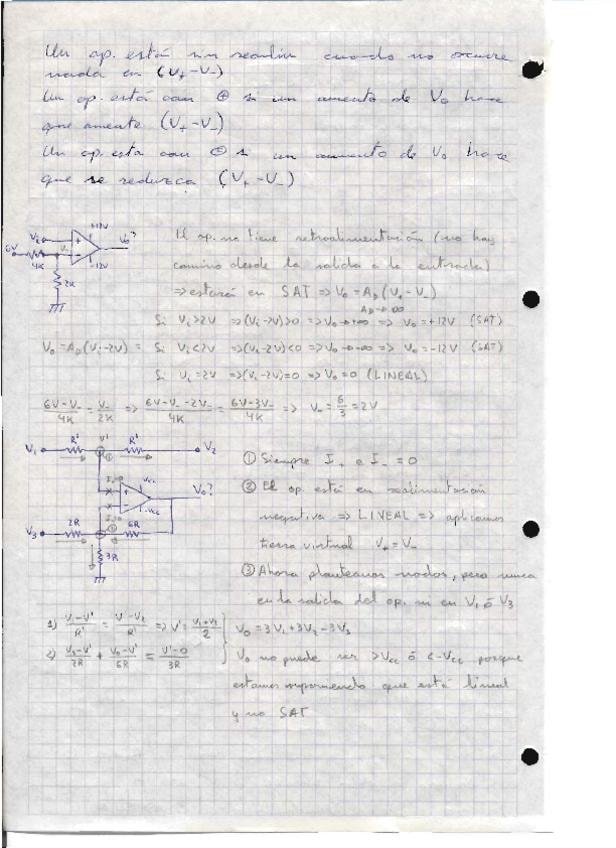 Un op. está sin realim cuando no ocurre
nada en (V+ - V-)
Un op. está con ⊕ si un aumento de Vo hace
que aumente (V+ - V-)
Un op. esta con ⊖ si un aumento de Vo hace
que se reduzca (V+ - V-)
+12V
Vi
Vo?
6V
4K
-12V
2K
El op. no tiene retroalimentación (no hay
camino desde la salida a la entrada)
=> estará en SAT => Vo = AD(V+ - V-)
AD→∞
Si Vi>2V => (Vi-2V)>0 => Vo→+∞ => Vo=+12V (SAT)
Vo = AD(Vi-2V) = Si Vi<2V => (Vi-2V)<0 => Vo→-∞ => Vo=-12V (SAT)
Si Vi=2V => (Vi-2V)=0 => Vo=0 (LINEAL)
6V-V-/4K = V-/2K => 6V-V--2V-/4K = 6V-3V-/4K => V- = 6/3 = 2V
V1 R' V' R' V2
Vcc
Vo?
-Vcc
V3 2R 6R
3R
① Siempre I+ e I- = 0
② El op. está en realimentación
negativa => LINEAL => aplicamos
tierra virtual V+=V-
③ Ahora planteamos nodos, pero nunca
en la salida del op. ni en V1 ó V3
1) V1-V'/R' = V'-V2/R' => V' = V1+V2/2
Vo = 3V1+3V2-3V3
2) V3-V'/2R + Vo-V'/6R = V'-0/3R
Vo no puede ser >Vcc ó <-Vcc porque
estamos suponiendo que está lineal
y no SAT